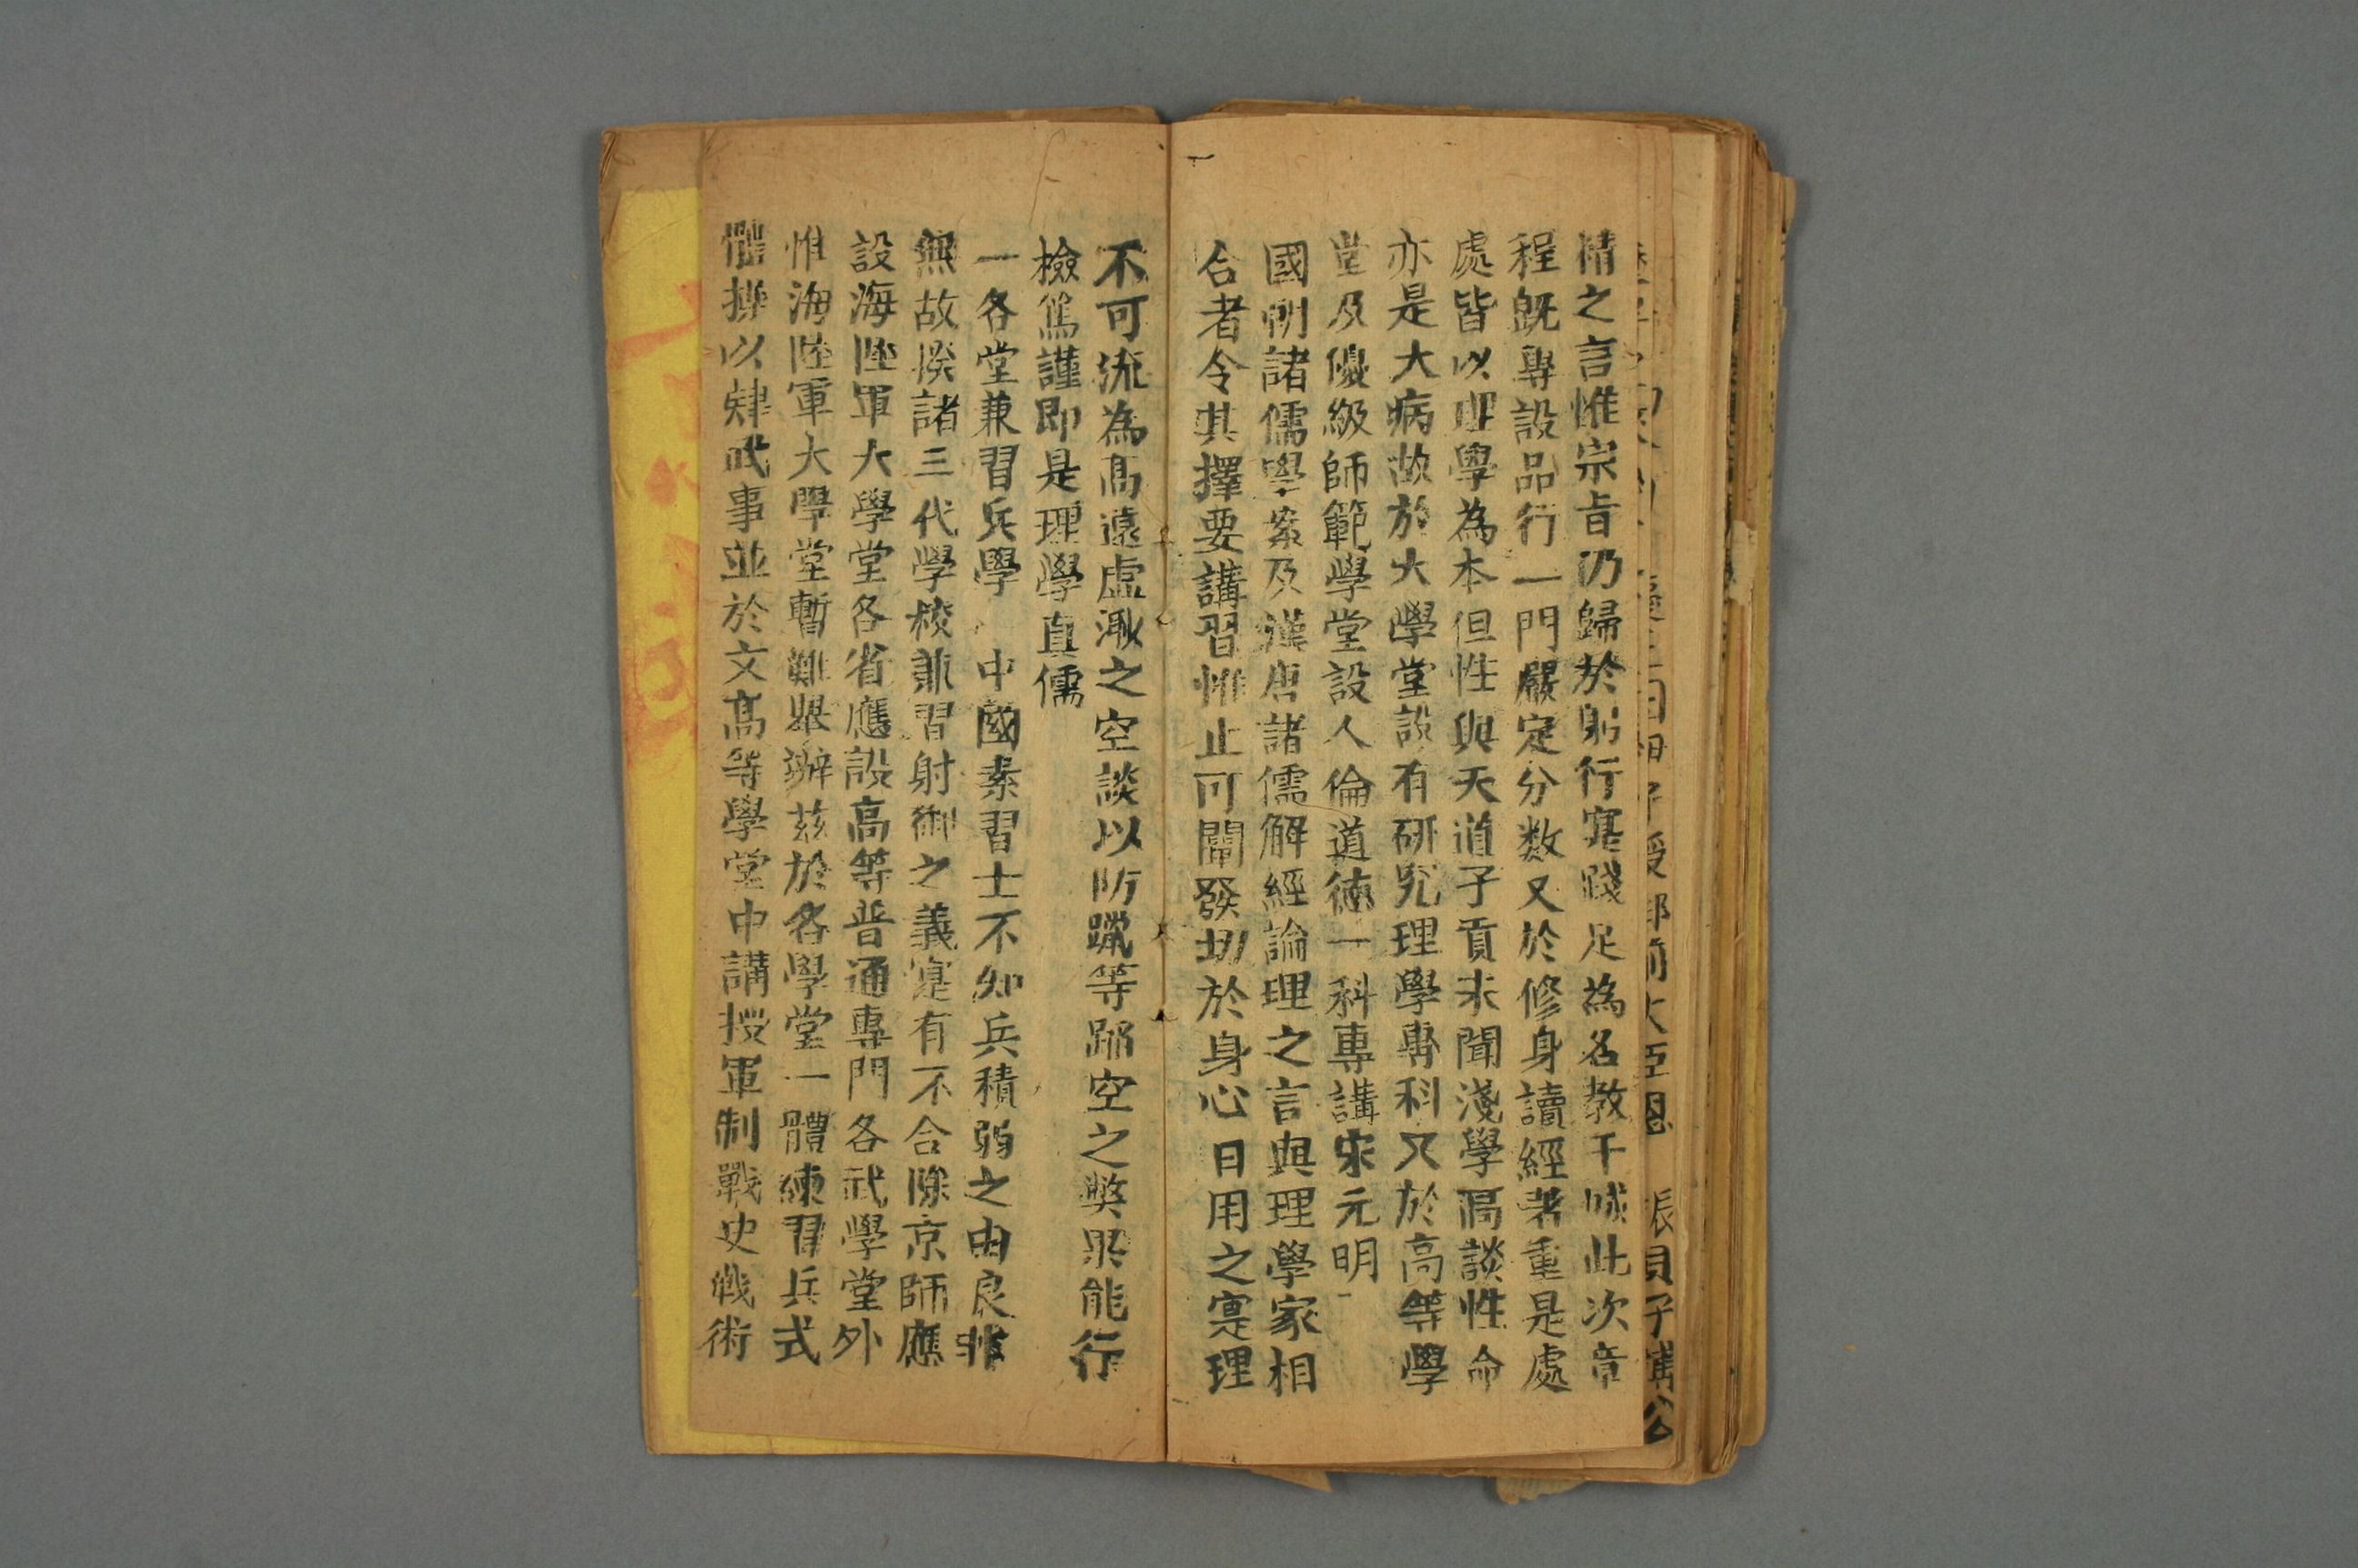 精之言惟宗旨仍歸於躬行寔踐足為名教干城此次章
程既專設品行一門嚴定分数又於修身讀經著重是處
處皆以理學為本但性與天道子貢未聞淺學高談性命
亦是大病故於大學堂設有研究理學專科又於高等學
堂及優級師範學堂設人倫道徳一科專講宋元明
國朝諸儒學案及漢唐諸儒解經論理之言與理學家相
合者令其擇要講習惟止可闡發切於身心日用之寔理
不可流為高遠虛渺之空談以防躐等蹈空之獘果能行
檢篤謹即是理學真儒
一各堂兼習兵學 中國素習士不知兵積弱之由良非
無故揆諸三代學校兼習射御之義寔有不合除京師應
設海陸軍大學堂各省應設高等普通專門各武學堂外
惟海陸軍大學堂暫難舉辦茲於各學堂一體練習兵式
體操以肄武事並於文高等學堂中講授軍制戰史戦術